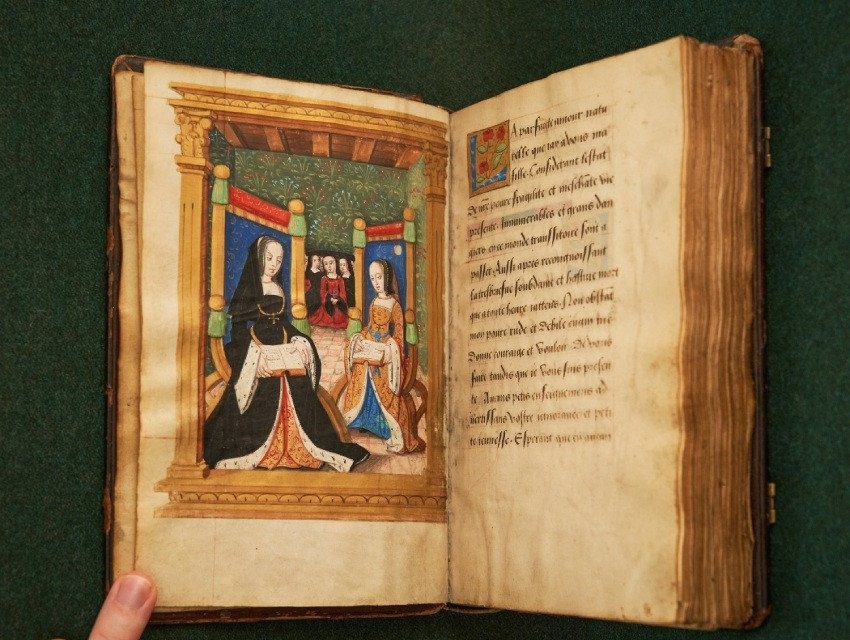 LA parfaicte amour natu
relle que iay a vous ma
fille. Considerant lestat
De nr̃e poure fragilite et meschãte vie
presente. Innumerables et grans dan
giers en ce monde transsitoire sont a
passer Aussi apres recongnoissant
la tresbriefue soubdaine et hastiue mort
que a toute heure iattens. Non obstãt
mon poure rude et debile engin me
Donne couraige et vouloir. De vous
faire tandis que ie vous suis presen
te. Aucuns petis enseignemens ad
vertissans vostre ignorance et peti
te ieunesse. Esperant que en aucun